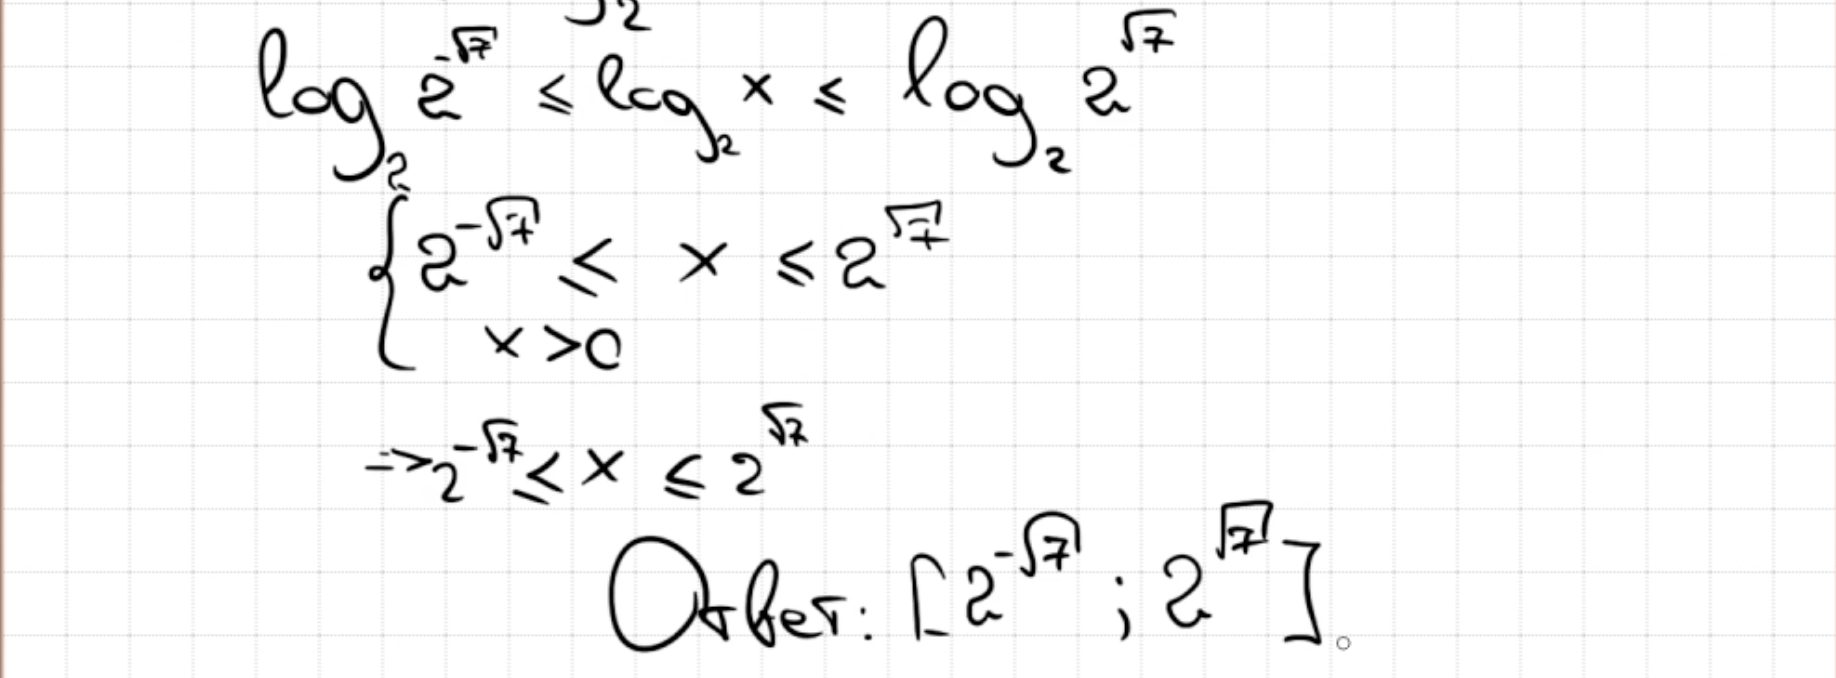 log₂ 2^(-√7) ≤ log₂ x ≤ log₂ 2^(√7)
{ 2^(-√7) ≤ x ≤ 2^(√7)
x > 0
=> 2^(-√7) ≤ x ≤ 2^(√7)
Ответ: [2^(-√7) ; 2^(√7)].